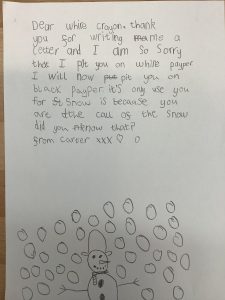 Dear white crayon. thank
you for writing me a
letter and I am so sorry
that I pit you on while payper
I will now put pit you on
black payper. it's only use you
for St Snow is because you
are the call of the snow
did you know that?
from carter xxx ♡ o